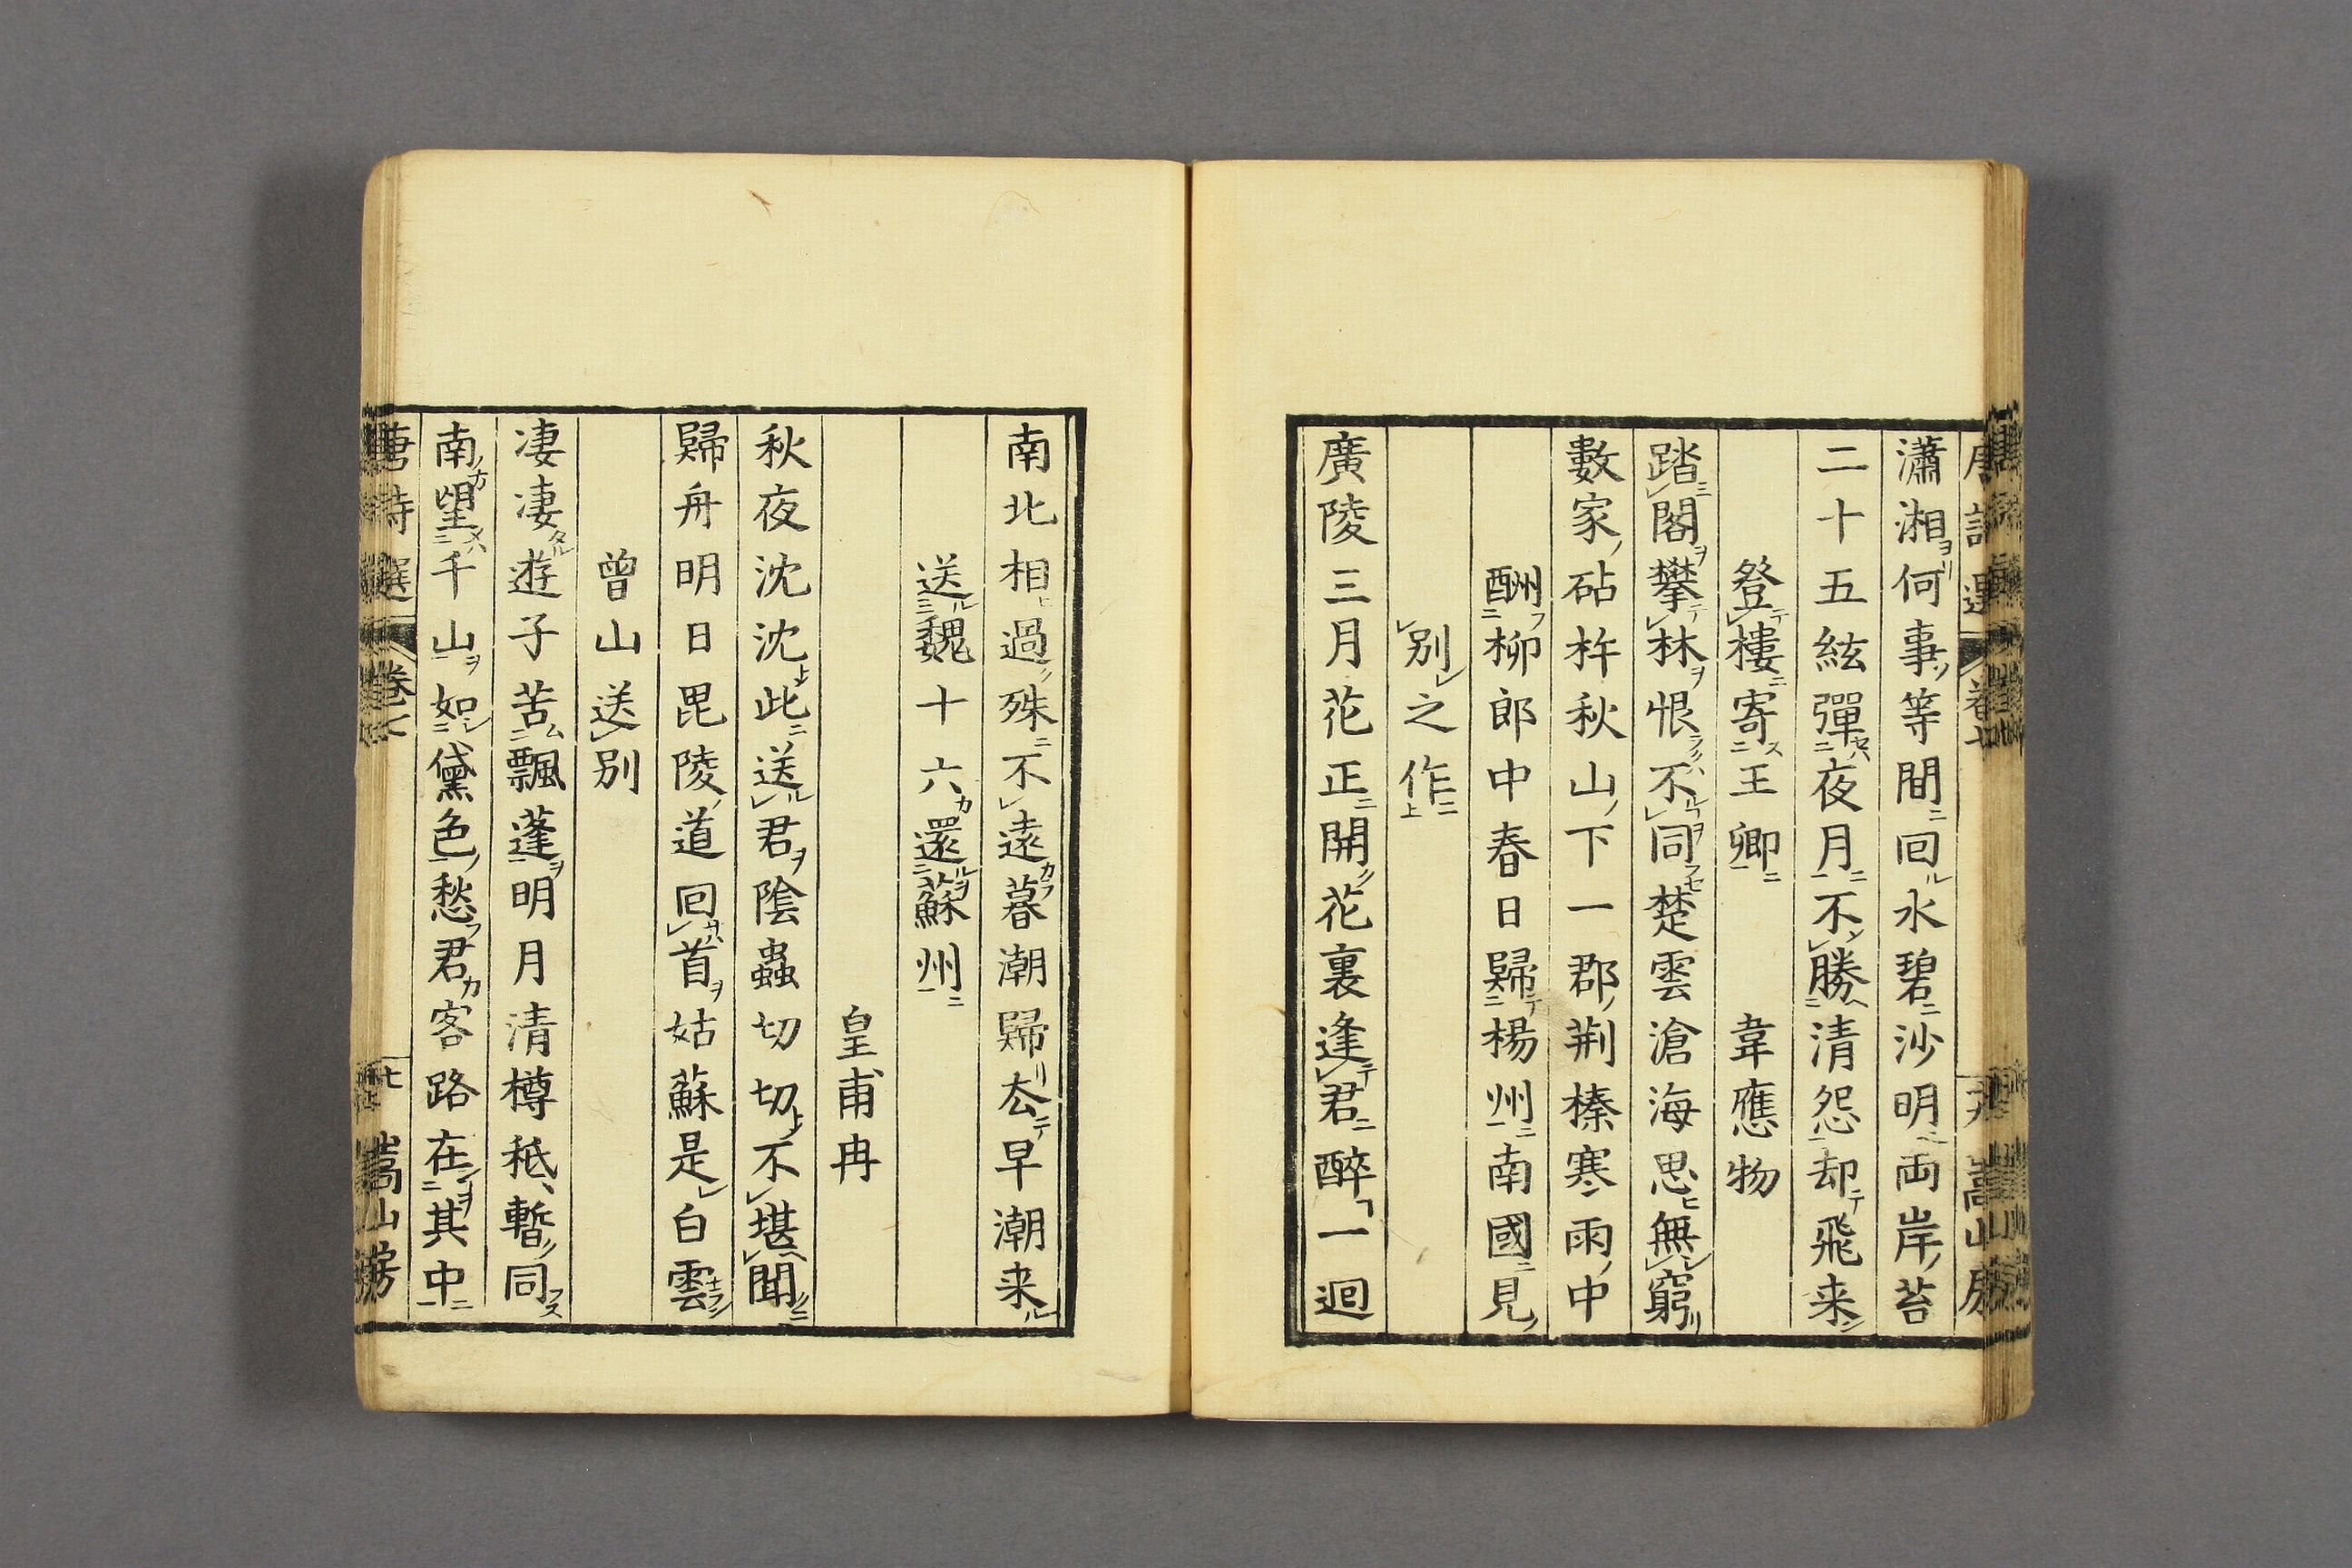 瀟湘何事等間回水碧沙明両岸苔
二十五絃彈夜月不勝清怨却飛来
登樓寄王卿 韋應物
踏閣攀林恨不同楚雲滄海思無窮
數家砧杵秋山下一郡荆榛寒雨中
酬柳郎中春日歸楊州南國見
別之作
廣陵三月花正開花裏逢君醉一迴
南北相過殊不遠暮潮歸去早潮来
送魏十六還蘇州
皇甫冉
秋夜沈沈此送君陰蟲切切不堪聞
歸舟明日毘陵道回首姑蘇是白雲
曾山送別
凄凄遊子苦飄蓬明月清樽秪暫同
南望千山如黛色愁君客路在其中
唐詩選 卷七 七 嵩山房